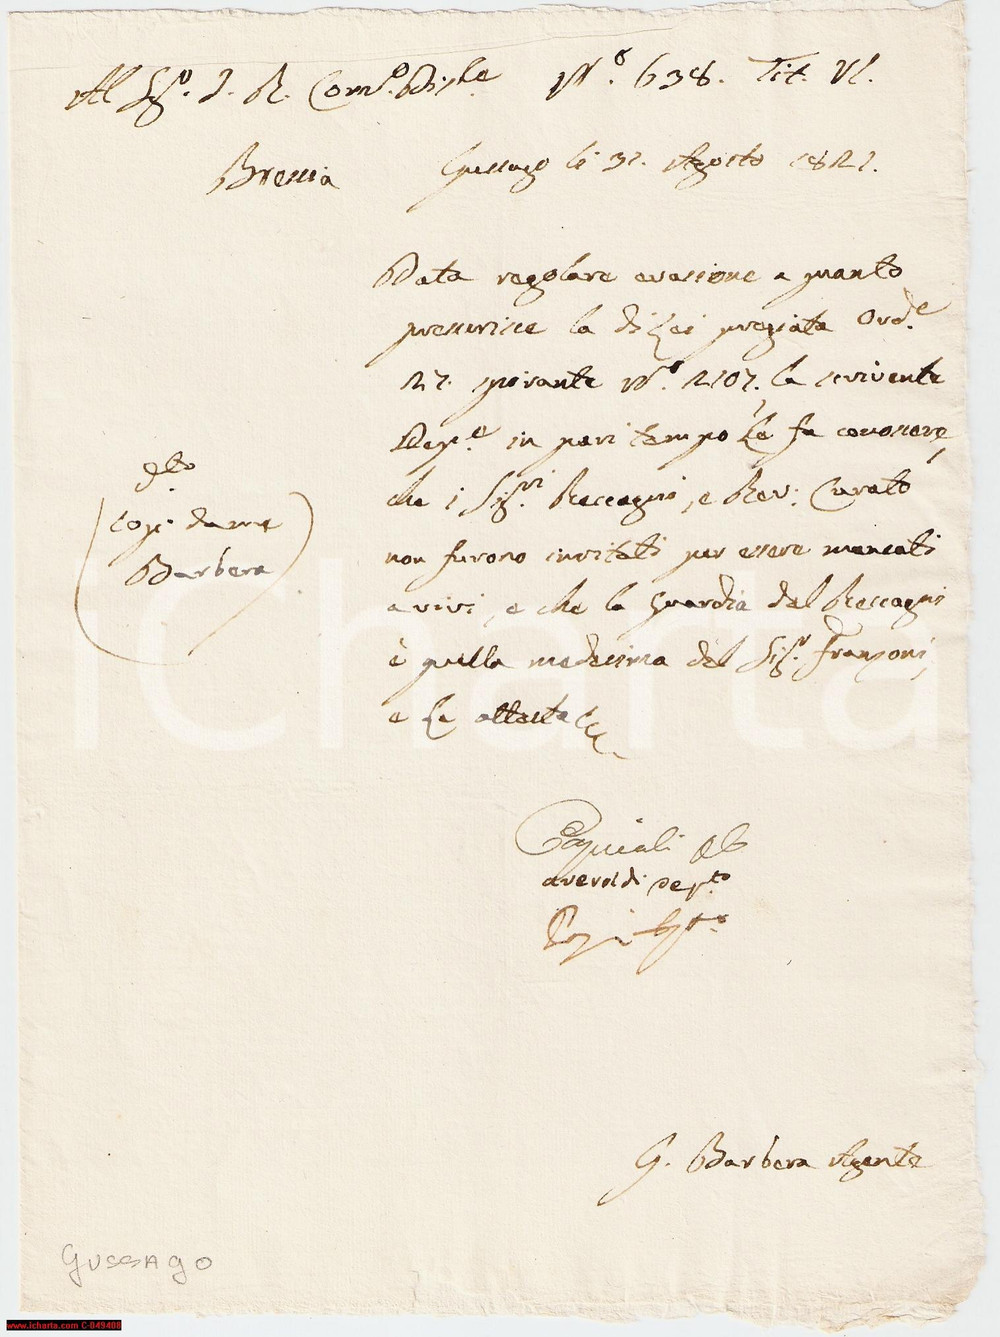 Al Sigo. I. R. Como. Diste. No. 638. Tit. VI.
Brescia Gussago li 31. Agosto 1821.
Data regolare evasione a quanto
prescrisce la di Lei pregiata Ord.e
27. spirante No. 2107, la scrivente
Dep.e in pari tempo Le fa conoscere,
che i Sig.ri Reccagni, e Rev: Curato
non furono invitati per essere mancati
a vivi, e che la Guardia del Reccagni
è quella medesima del Sigr. Franzoni,
e Le attesta
dto.
copi da me
Barbera
averoldi Depto
G. Barbera Agente
GUSSAGO
iCharta
www.icharta.com C-049408